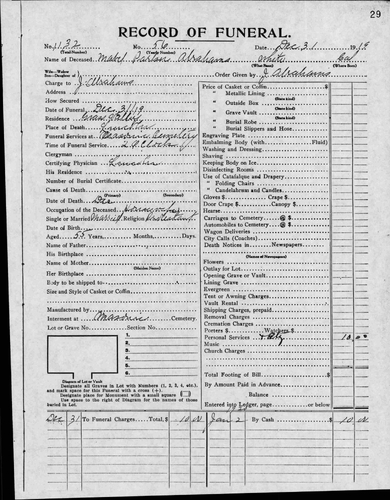 29
RECORD OF FUNERAL.
No. 1132 No. 56 Date Dec 31 1919
(Total Number) (Yearly Number)
Name of Deceased Mabel Abrahams White
(What Race) (Where Born)
Wife-Widow
Son-Daughter of
Order Given by J. Abrahams
Charge to J. Abrahams
Address
How Secured
Date of Funeral Dec 31/19
Residence
Place of Death
Funeral Services at Masonic Cemetery
Time of Funeral Service 2 P.
Clergyman
Certifying Physician Lincoln
His Residence
Number of Burial Certificate
Cause of Death
(Primary) (Secondary)
Date of Death Dec
Occupation of the Deceased Housewife
Single or Married Married Religion Protestant
Date of Birth
Aged 53 Years, Months, Days.
Name of Father
His Birthplace
Name of Mother
(Maiden Name)
Her Birthplace
Body to be shipped to
Size and Style of Casket or Coffin
Manufactured by
Interment at Masonic Cemetery
Lot or Grave No. Section No.
1.
2.
3.
4.
5.
6.
Diagram of Lot or Vault
Designate all Graves in Lot with Numbers (1, 2, 3, 4, etc.),
and mark space for this Funeral with a cross (+).
Designate place for Monument with a small square
Use space to the right of Diagram for the names of those
buried in Lot.
Price of Casket or Coffin
" Metallic Lining
(State kind)
" Outside Box
(State kind)
" Grave Vault
(State kind)
" Burial Robe
(State kind)
" Burial Slippers and Hose
Engraving Plate
Embalming Body (with Fluid)
Washing and Dressing
Shaving
Keeping Body on Ice
Disinfecting Rooms
Use of Catafalque and Drapery
" Folding Chairs
" Candelabrum and Candles
Gloves $ Crape $
Door Crape $ Canopy $
Hearse
Carriages to Cemetery @ $
Automobiles to Cemetery @ $
Wagon Deliveries
City Calls (Coaches)
Death Notices in Newspapers
(Names of Newspapers)
Flowers
Outlay for Lot
Opening Grave or Vault
Lining Grave
Evergreen
Tent or Awning Charges
Vault Charges
Shipping Charges, prepaid
Removal Charges
Cremation Charges
Porters $ Watchers $
Personal Services 10.00
Music
Church Charges
Total Footing of Bill
By Amount Paid in Advance
Balance
Entered into Ledger, page or below
Dec 31 To Funeral Charges, Total, $ 10 00 Jan 2 By Cash $ 10 00